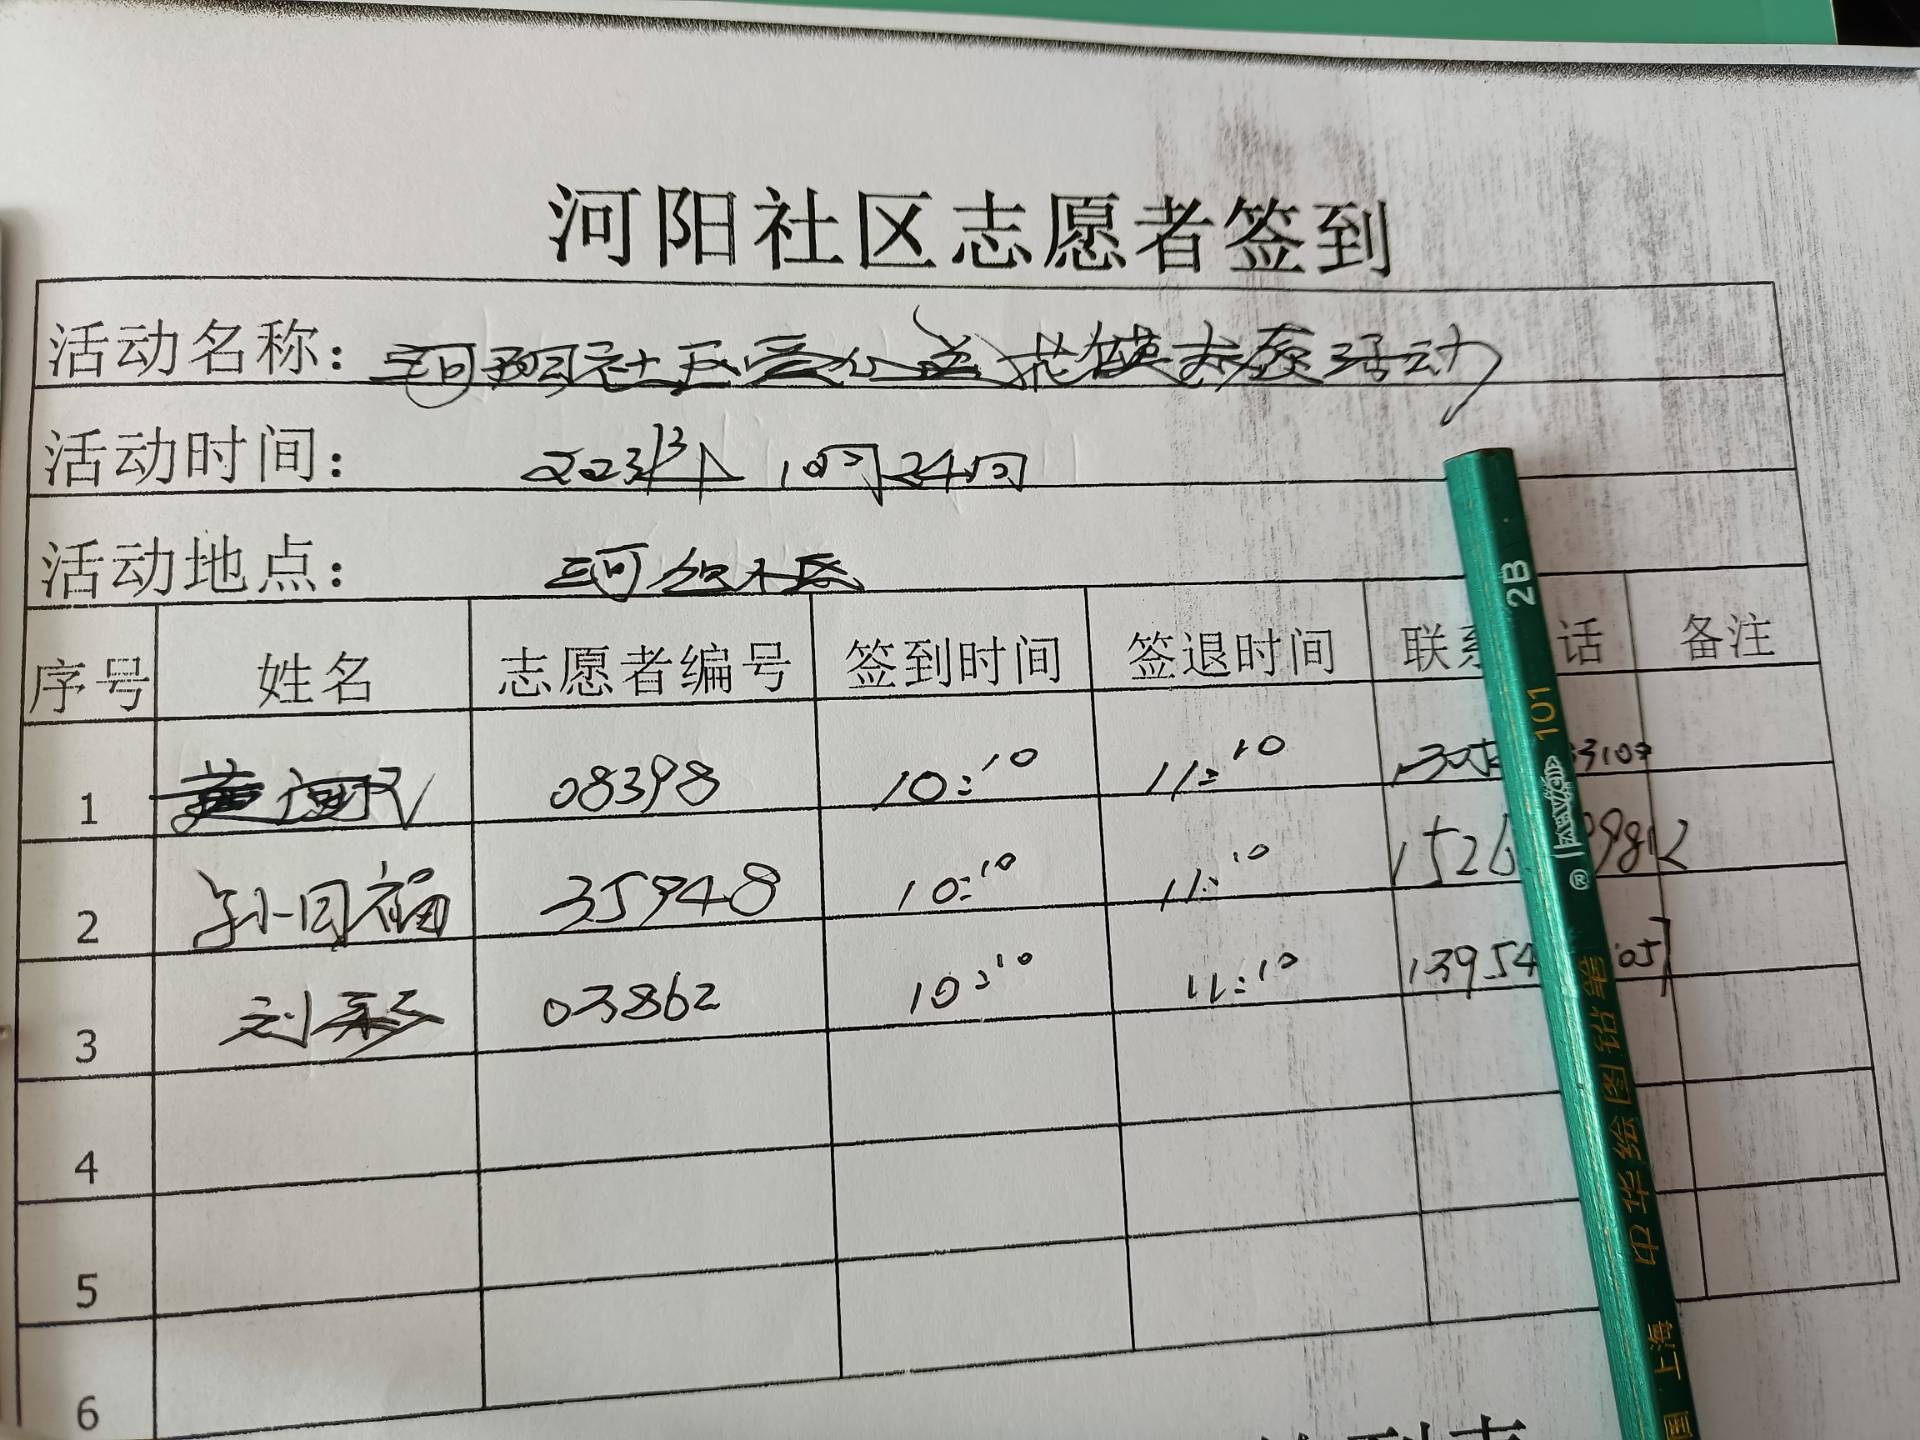 河阳社区志愿者签到
活动名称：河阳社区 志愿活动
活动时间： 年 10月24日
活动地点：
序号 姓名 志愿者编号 签到时间 签退时间 联 话 备注
1 08398 10:10 11:10 3102
2 孙同福 35948 10:10 11:10 152
3 刘彩 03862 10:10 11:10 13954 05
4
5
6
2B
101
®
中华绘图铅笔
上海